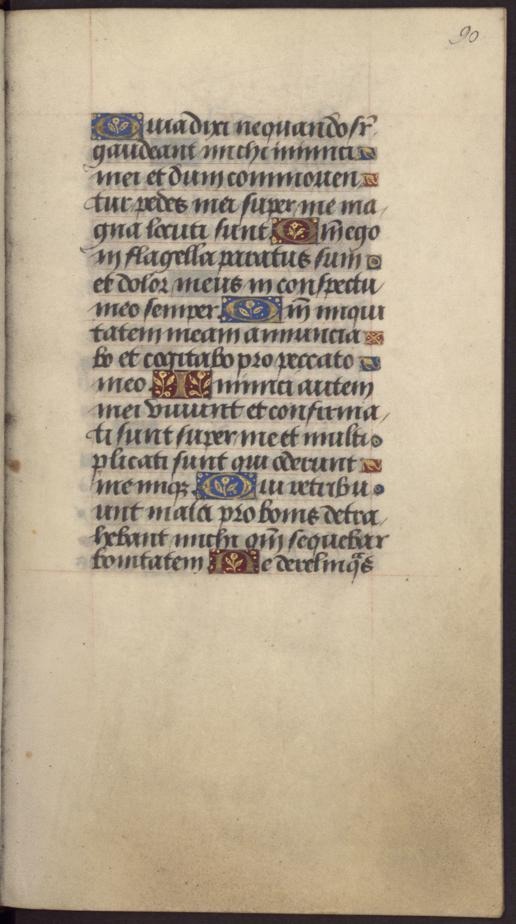 90
Quia dixi nequando sr̄
gaudeant michi inimici
mei et dum commoven
tur pedes mei super me ma
gna locuti sunt Qm̄ ego
in flagella paratus sum
et dolor meus in conspectu
meo semper Qm̄ iniqui
tatem meam annuncia
bo et cogitabo pro peccato
meo Inimici autem
mei vivunt et confirma
ti sunt super me et multi
plicati sunt qui oderunt
me iniq; Qui retribu
unt mala pro bonis detra
hebant michi qm̄ sequebar
bonitatem Ne derelinq̄s